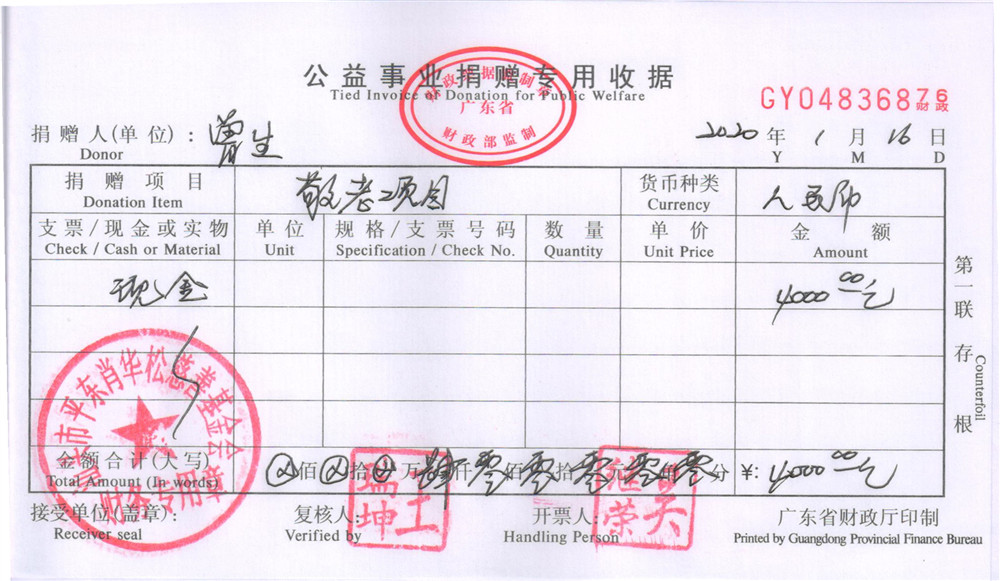 公益事业捐赠专用收据
Tied Invoice of Donation for Public Welfare
财政票据监制章
广东省
财政部监制
GY04836876
财政
捐赠人(单位):曾生
Donor
2020年1月16日
Y M D
捐赠项目 敬老项目 货币种类 人民币
Donation Item Currency
支票/现金或实物 单位 规格/支票号码 数量 单价 金额
Check / Cash or Material Unit Specification / Check No. Quantity Unit Price Amount
现金 4000.00元
市平东肖华松慈善基金会
财务专用章
金额合计(大写) ⊗佰⊗拾⊗万肆仟零佰零拾零元零角零分 ¥: 4000.00元
Total Amount (In words)
接受单位(盖章): 复核人: 瑞坤王 开票人: 继荣吴 广东省财政厅印制
Receiver seal Verified by Handling Person Printed by Guangdong Provincial Finance Bureau
第一联 存根
Counterfoil